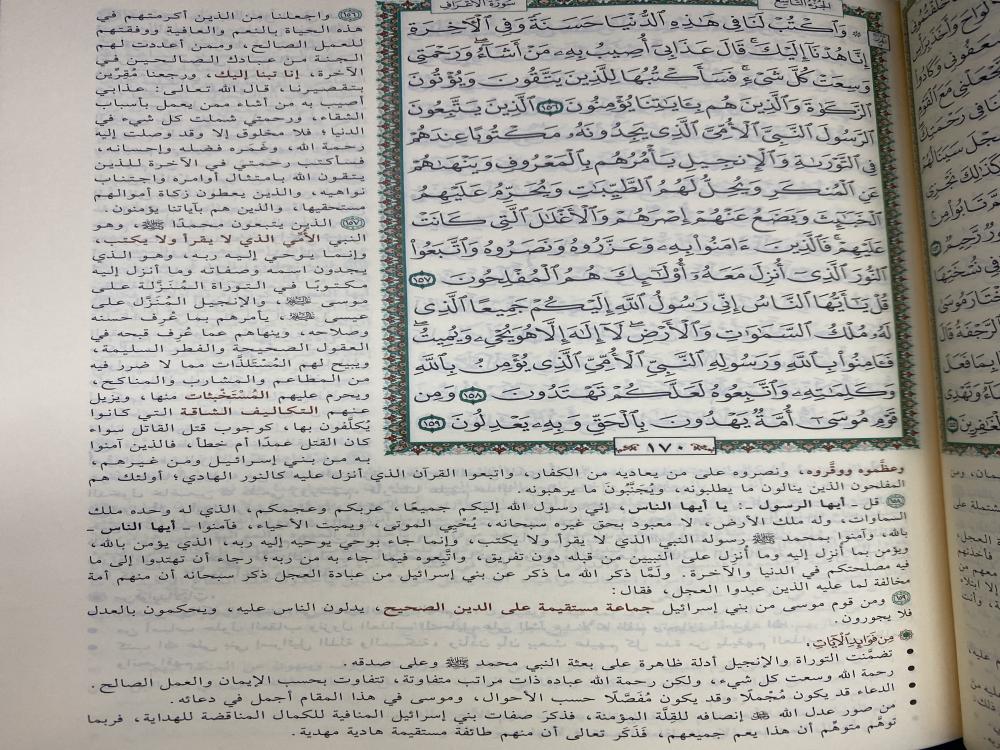 الجزء التاسع
سورة الأعراف
۞ وَٱكْتُبْ لَنَا فِى هَٰذِهِ ٱلدُّنْيَا حَسَنَةً وَفِى ٱلْءَاخِرَةِ
إِنَّا هُدْنَآ إِلَيْكَ ۚ قَالَ عَذَابِىٓ أُصِيبُ بِهِۦ مَنْ أَشَآءُ ۖ وَرَحْمَتِى
وَسِعَتْ كُلَّ شَىْءٍ ۚ فَسَأَكْتُبُهَا لِلَّذِينَ يَتَّقُونَ وَيُؤْتُونَ
ٱلزَّكَوٰةَ وَٱلَّذِينَ هُم بِـَٔايَٰتِنَا يُؤْمِنُونَ ١٥٦ ٱلَّذِينَ يَتَّبِعُونَ
ٱلرَّسُولَ ٱلنَّبِىَّ ٱلْأُمِّىَّ ٱلَّذِى يَجِدُونَهُۥ مَكْتُوبًا عِندَهُمْ
فِى ٱلتَّوْرَىٰةِ وَٱلْإِنجِيلِ يَأْمُرُهُم بِٱلْمَعْرُوفِ وَيَنْهَىٰهُمْ
عَنِ ٱلْمُنكَرِ وَيُحِلُّ لَهُمُ ٱلطَّيِّبَٰتِ وَيُحَرِّمُ عَلَيْهِمُ
ٱلْخَبَٰٓئِثَ وَيَضَعُ عَنْهُمْ إِصْرَهُمْ وَٱلْأَغْلَٰلَ ٱلَّتِى كَانَتْ
عَلَيْهِمْ ۚ فَٱلَّذِينَ ءَامَنُوا۟ بِهِۦ وَعَزَّرُوهُ وَنَصَرُوهُ وَٱتَّبَعُوا۟
ٱلنُّورَ ٱلَّذِىٓ أُنزِلَ مَعَهُۥٓ ۙ أُو۟لَٰٓئِكَ هُمُ ٱلْمُفْلِحُونَ ١٥٧
قُلْ يَٰٓأَيُّهَا ٱلنَّاسُ إِنِّى رَسُولُ ٱللَّهِ إِلَيْكُمْ جَمِيعًا ٱلَّذِى
لَهُۥ مُلْكُ ٱلسَّمَٰوَٰتِ وَٱلْأَرْضِ ۖ لَآ إِلَٰهَ إِلَّا هُوَ يُحْىِۦ وَيُمِيتُ ۖ
فَـَٔامِنُوا۟ بِٱللَّهِ وَرَسُولِهِ ٱلنَّبِىِّ ٱلْأُمِّىِّ ٱلَّذِى يُؤْمِنُ بِٱللَّهِ
وَكَلِمَٰتِهِۦ وَٱتَّبِعُوهُ لَعَلَّكُمْ تَهْتَدُونَ ١٥٨ وَمِن
قَوْمِ مُوسَىٰٓ أُمَّةٌ يَهْدُونَ بِٱلْحَقِّ وَبِهِۦ يَعْدِلُونَ ١٥٩
١٧٠
١٥٦ واجعلنا من الذين أكرمتهم في
هذه الحياة بالنعم والعافية ووفقتهم
للعمل الصالح، وممن أعددت لهم
الجنة من عبادك الصالحين في
الآخرة، إنا تبنا إليك، ورجعنا مُقِرّين
بتقصيرنا، قال الله تعالى: عذابي
أصيب به من أشاء ممن يعمل بأسباب
الشقاء، ورحمتي شملت كل شيء في
الدنيا؛ فلا مخلوق إلا وقد وصلت إليه
رحمة الله، وغَمَره فضله وإحسانه،
فسأكتب رحمتي في الآخرة للذين
يتقون الله بامتثال أوامره واجتناب
نواهيه، والذين يعطون زكاة أموالهم
مستحقيها، والذين هم بآياتنا يؤمنون.
١٥٧ الذين يتبعون محمدًا ﷺ، وهو
النبي الأُمِّي الذي لا يقرأ ولا يكتب،
وإنما يوحي إليه ربه، وهو الذي
يجدون اسمه وصفاته وما أنزل إليه
مكتوبًا في التوراة المُنَزَّلة على
موسى ﵇، والإنجيل المُنَزَّل على
عيسى ﵇، يأمرهم بما عُرِف حسنه
وصلاحه، وينهاهم عما عُرِف قبحه في
العقول الصحيحة والفطر السليمة،
ويبيح لهم المُسْتَلَذَّات مما لا ضرر فيه
من المطاعم والمشارب والمناكح،
ويحرم عليهم المُسْتَخْبَثات منها، ويزيل
عنهم التكاليف الشاقة التي كانوا
يُكَلَّفون بها، كوجوب قتل القاتل سواء
كان القتل عمدًا أم خطأ، فالذين آمنوا
به من بني إسرائيل ومن غيرهم،
وعظَّموه ووقَّروه، ونصروه على من يعاديه من الكفار، واتبعوا القرآن الذي أنزل عليه كالنور الهادي؛ أولئك هم
المفلحون الذين ينالون ما يطلبونه، ويُجَنَّبُون ما يرهبونه.
١٥٨ قل ـ أيها الرسول ـ: يا أيها الناس، إني رسول الله إليكم جميعًا، عربكم وعجمكم، الذي له وحده ملك
السماوات، وله ملك الأرض، لا معبود بحق غيره سبحانه، يُحْيِي الموتى، ويميت الأحياء، فآمنوا ـ أيها الناس ـ
بالله، وآمنوا بمحمد ﷺ رسوله النبي الذي لا يقرأ ولا يكتب، وإنما جاء بوحي يوحيه إليه ربه، الذي يؤمن بالله،
ويؤمن بما أنزل إليه وما أُنزِل على النبيين من قبله دون تفريق، واتَّبِعوه فيما جاء به من ربه؛ رجاء أن تهتدوا إلى ما
فيه مصلحتكم في الدنيا والآخرة. ولَمَّا ذكر الله ما ذكر عن بني إسرائيل من عبادة العجل ذكر سبحانه أن منهم أمة
مخالفة لما عليه الذين عبدوا العجل، فقال:
١٥٩ ومن قوم موسى من بني إسرائيل جماعة مستقيمة على الدين الصحيح، يدلون الناس عليه، ويحكمون بالعدل
فلا يجورون.
مِن فَوَائِدِ الْآيَاتِ:
• تضمَّنت التوراة والإنجيل أدلة ظاهرة على بعثة النبي محمد ﷺ وعلى صدقه.
• رحمة الله وسعت كل شيء، ولكن رحمة الله عباده ذات مراتب متفاوتة، تتفاوت بحسب الإيمان والعمل الصالح.
• الدعاء قد يكون مُجْملًا وقد يكون مُفَصَّلًا حسب الأحوال، وموسى في هذا المقام أجمل في دعائه.
• من صور عدل الله ﷻ إنصافه للقِلَّة المؤمنة، فذكرَ صفات بني إسرائيل المنافية للكمال المناقضة للهداية، فربما
توهَّم متوهِّم أن هذا يعم جميعهم، فَذَكَر تعالى أن منهم طائفة مستقيمة هادية مهدية.